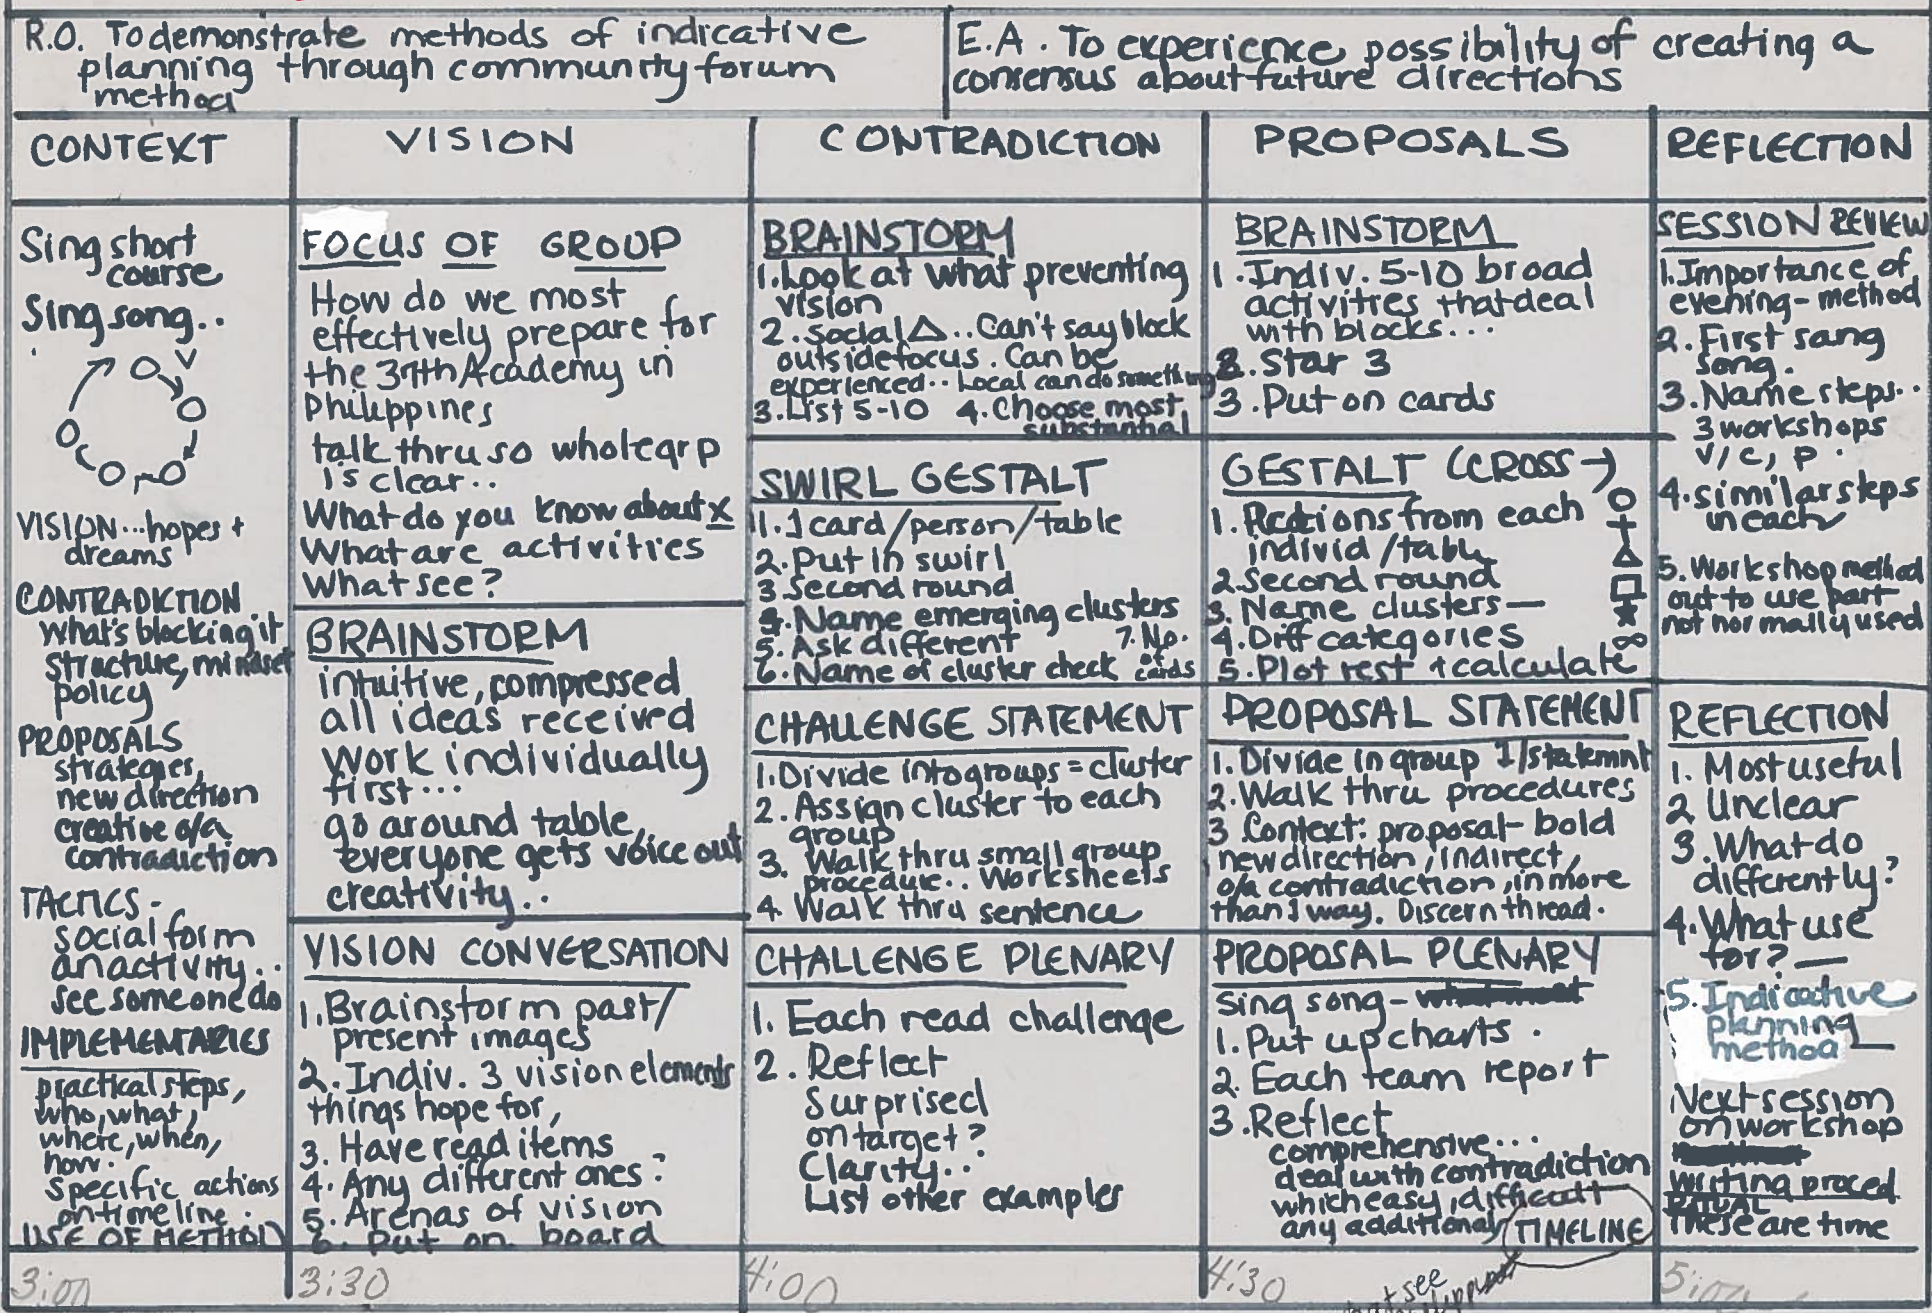 R.O. To demonstrate methods of indicative
planning through community forum
method
E.A. To experience possibility of creating a
consensus about future directions
CONTEXT
Sing short
course
Sing song..
V
VISION...hopes +
dreams
CONTRADICTION
what's blocking it
structure, mindset
policy
PROPOSALS
strategies,
new direction
creative o/a
contradiction
TACTICS -
social form
an activity..
see someone do
IMPLEMENTARIES
practical steps,
who, what,
where, when,
how.
specific actions
on timeline.
USE OF METHOD
3:00
VISION
FOCUS OF GROUP
How do we most
effectively prepare for
the 37th Academy in
Philippines
talk thru so whole grp
is clear..
What do you know about X
What are activities
What see?
BRAINSTORM
intuitive, compressed
all ideas received
work individually
first...
go around table,
everyone gets voice out
creativity..
VISION CONVERSATION
1. Brainstorm past/
present images
2. Indiv. 3 vision elements
things hope for,
3. Have read items
4. Any different ones?
5. Arenas of vision
6. Put on board
3:30
CONTRADICTION
BRAINSTORM
1. Look at what preventing
vision
2. Social △.. Can't say block
outside focus. Can be
experienced.. Local can do something
3. List 5-10 4. Choose most
substantial
SWIRL GESTALT
1. 1 card/person/table
2. Put in swirl
3. Second round
4. Name emerging clusters
5. Ask different
6. Name of cluster check
7. No.
of
cards
CHALLENGE STATEMENT
1. Divide into groups = cluster
2. Assign cluster to each
group
3. Walk thru small group
procedure.. Worksheets
4. Walk thru sentence
CHALLENGE PLENARY
1. Each read challenge
2. Reflect
Surprised
on target?
Clarity..
List other examples
4:00
PROPOSALS
BRAINSTORM
1. Indiv. 5-10 broad
activities that deal
with blocks...
2. Star 3
3. Put on cards
GESTALT (CROSS →)
1. Actions from each
individ/table
2. Second round
3. Name clusters —
4. Diff categories
5. Plot rest + calculate
PROPOSAL STATEMENT
1. Divide in group 1/statemnt
2. Walk thru procedures
3 Context: proposal- bold
new direction, indirect,
o/a contradiction, in more
than 1 way. Discern thread.
PROPOSAL PLENARY
Sing song -
1. Put up charts.
2. Each team report
3. Reflect
comprehensive...
deal with contradiction
which easy, difficult
any additional
TIMELINE
4:30
see
REFLECTION
SESSION REVIEW
1. Importance of
evening - method
2. First sang
song.
3. Name steps..
3 workshops
V/C, P.
4. similar steps
in each
5. Workshop method
out to use part
not normally used
REFLECTION
1. Most useful
2 Unclear
3. What do
differently?
4. What use
for? —
5. Indicative
planning
method
Next session
on workshop
writing proced
RITUAL
These are time
5:00